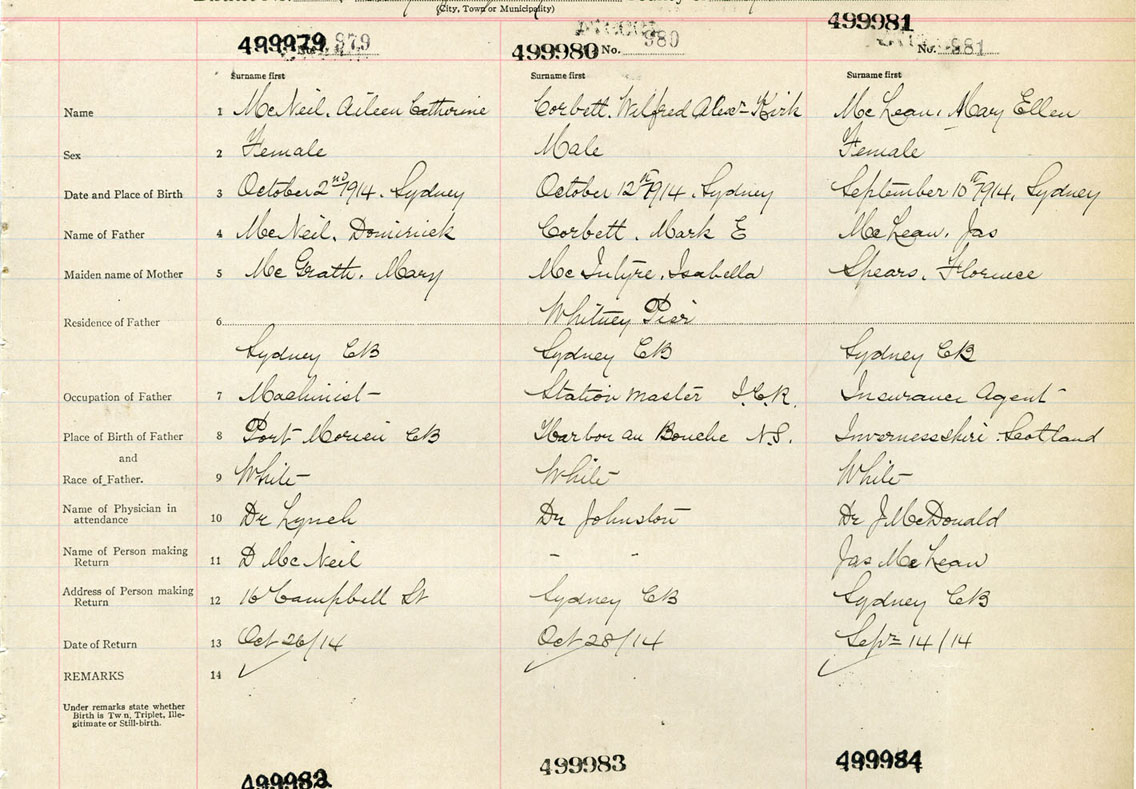 (City, Town or Municipality)
499979 No. 979
499980 No. 980
499981 No. 981
Surname first Surname first Surname first
Name 1 McNeil, Aileen Catherine Corbett, Wilfred Alexr Kirk McLean, Mary Ellen
Sex 2 Female Male Female
Date and Place of Birth 3 October 2nd 1914. Sydney October 12th 1914. Sydney September 10th 1914, Sydney
Name of Father 4 McNeil, Dominick Corbett, Mark E McLean, Jas
Maiden name of Mother 5 McGrath, Mary McIntyre, Isabella Spears, Florence
Whitney Pier
Residence of Father 6
Sydney CB Sydney CB Sydney CB
Occupation of Father 7 Machinist Station master I.C.R. Insurance Agent
Place of Birth of Father 8 Port Morien CB Harbor au Bouche N.S. Invernessshire. Scotland
and
Race of Father. 9 White White White
Name of Physician in
attendance 10 Dr Lynch Dr Johnston Dr J McDonald
Name of Person making
Return 11 D McNeil - - Jas McLean
Address of Person making
Return 12 16 Campbell St Sydney CB Sydney CB
Date of Return 13 Oct 26/14 Oct 28/14 Sept 14/14
REMARKS 14
Under remarks state whether
Birth is Tw n, Triplet, Ille-
gitimate or Still-birth.
499982 499983 499984